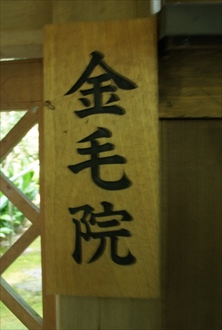 金毛院